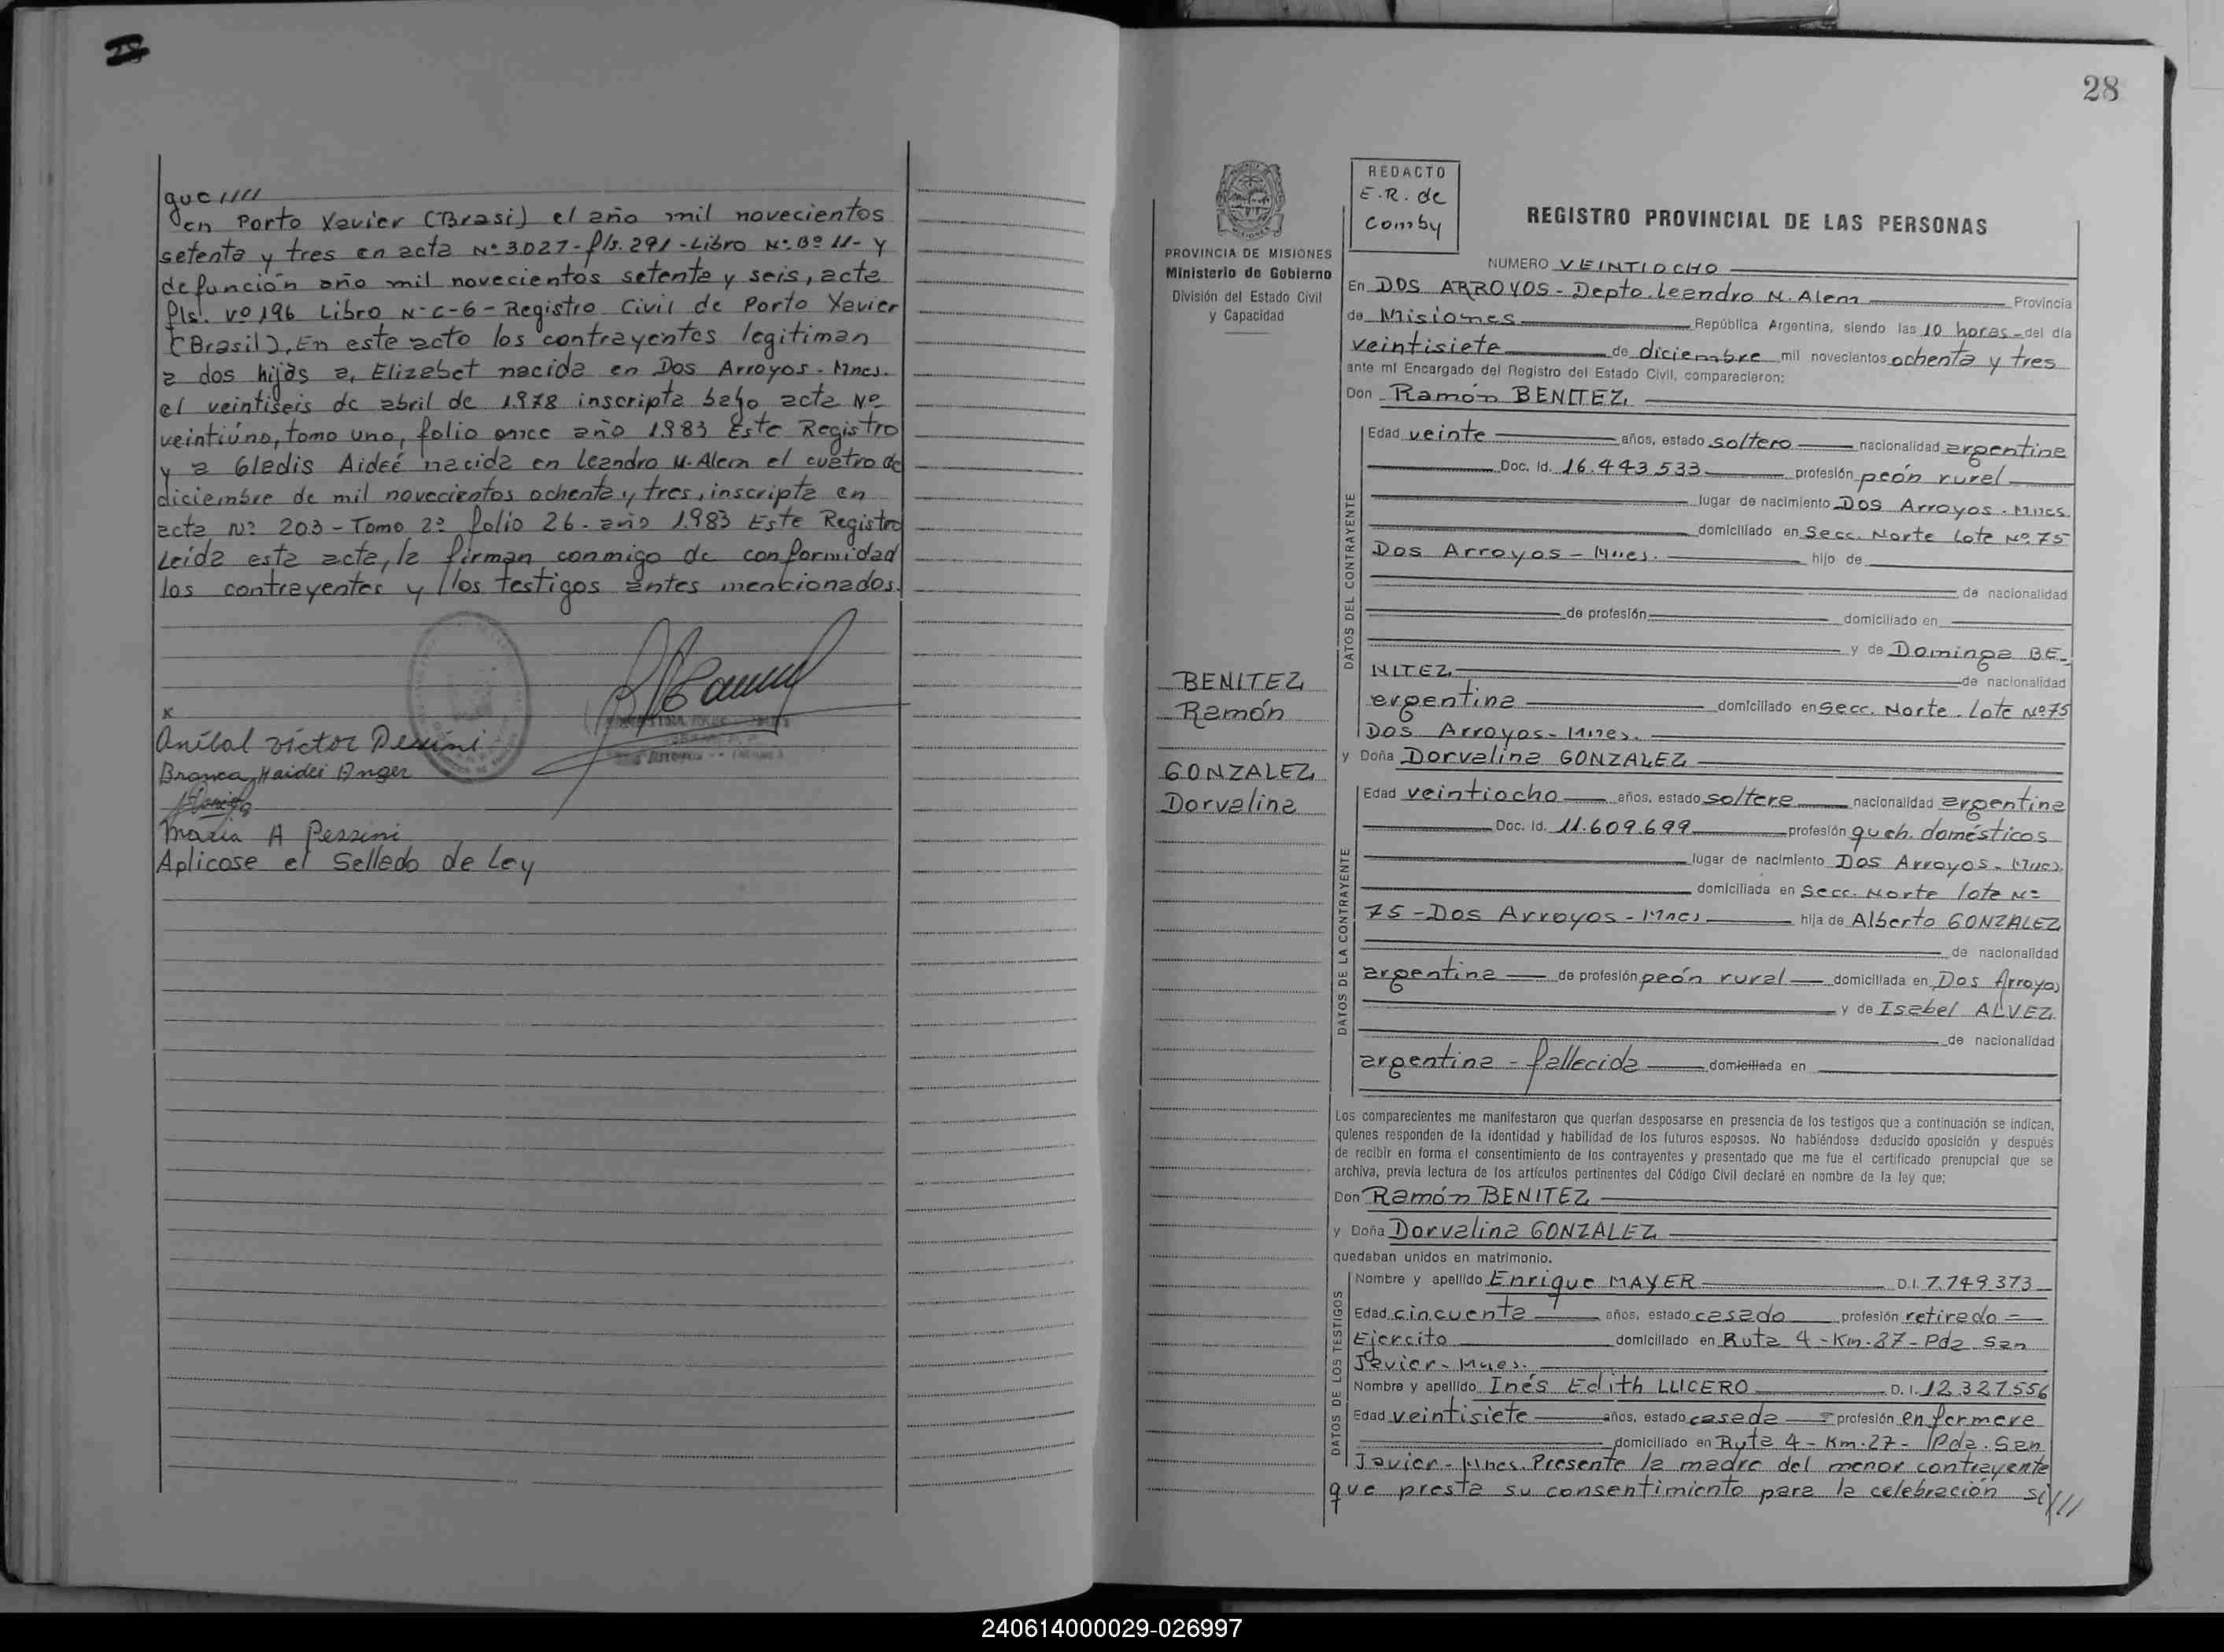 que ////
en Porto Xavier (Brasi) el año mil novecientos
setenta y tres en acta Nº 3.027 - fls. 291 - Libro Nº Bº 11 - y
defunción año mil novecientos setenta y seis, acta
fls. vº 196 Libro Nº C-6 - Registro Civil de Porto Xavier
(Brasil), En este acto los contrayentes legitiman
a dos hijas a, Elizabet nacida en Dos Arroyos - Mnes.
el veintiseis de abril de 1.978 inscripta bajo acta Nº
veintiúno, tomo uno, folio once año 1.983 Este Registro
y a Gladis Aideé nacida en Leandro N. Alem el cuatro de
diciembre de mil novecientos ochenta y tres, inscripta en
acta Nº 203 - Tomo 2º folio 26 - año 1.983 Este Registro
Leida esta acta, la firman conmigo de conformidad
los contrayentes y los testigos antes mencionados.
x
Anibal Victor Pessini
Branca Haidei Anger
Maria A Pessini
Aplicose el Sellado de Ley
28
PROVINCIA DE MISIONES
Ministerio de Gobierno
División del Estado Civil
y Capacidad
REDACTO
E.R. de
Comby
REGISTRO PROVINCIAL DE LAS PERSONAS
NUMERO VEINTIOCHO
En DOS ARROYOS - Depto. Leandro N. Alem Provincia
de Misiones República Argentina, siendo las 10 horas - del día
veintisiete de diciembre mil novecientos ochenta y tres
ante mí Encargado del Registro del Estado Civil, comparecieron:
Don Ramón BENITEZ
DATOS DEL CONTRAYENTE
Edad veinte años, estado soltero nacionalidad argentina
Doc. Id. 16.443.533 profesión peón rural
lugar de nacimiento Dos Arroyos - Mnes
domiciliado en Secc. Norte Lote Nº 75
Dos Arroyos - Mnes. hijo de
de nacionalidad
de profesión domiciliado en
y de Dominga BE-
NITEZ de nacionalidad
argentina domiciliado en Secc. Norte - Lote Nº 75
Dos Arroyos - Mnes.
BENITEZ
Ramón
GONZALEZ
Dorvalina
y Doña Dorvalina GONZALEZ
DATOS DE LA CONTRAYENTE
Edad veintiocho años, estado soltera nacionalidad argentina
Doc. Id. 11.609.699 profesión queh. domésticos
lugar de nacimiento Dos Arroyos - Mnes.
domiciliada en Secc. Norte lote Nº
75 - Dos Arroyos - Mnes hija de Alberto GONZALEZ
de nacionalidad
argentina de profesión peón rural domiciliada en Dos Arroyos
y de Isabel ALVEZ
de nacionalidad
argentina - fallecida domiciliada en
Los comparecientes me manifestaron que querían desposarse en presencia de los testigos que a continuación se indican,
quienes responden de la identidad y habilidad de los futuros esposos. No habiéndose deducido oposición y después
de recibir en forma el consentimiento de los contrayentes y presentado que me fue el certificado prenupcial que se
archiva, previa lectura de los artículos pertinentes del Código Civil declaré en nombre de la ley que:
Don Ramón BENITEZ
y Doña Dorvalina GONZALEZ
quedaban unidos en matrimonio.
DATOS DE LOS TESTIGOS
Nombre y apellido Enrique MAYER D.I. 7.749.373
Edad cincuenta años, estado casado profesión retirado =
Ejercito domiciliado en Ruta 4 - Km. 27 - Pda San
Javier - Mnes.
Nombre y apellido Inés Edith LUCERO D.I. 12.327.556
Edad veintisiete años, estado casada = profesión enfermera
domiciliado en Ruta 4 - Km. 27 - Pda. San
Javier - Mnes. Presente la madre del menor contrayente
que presta su consentimiento para la celebración si////
240614000029-026997